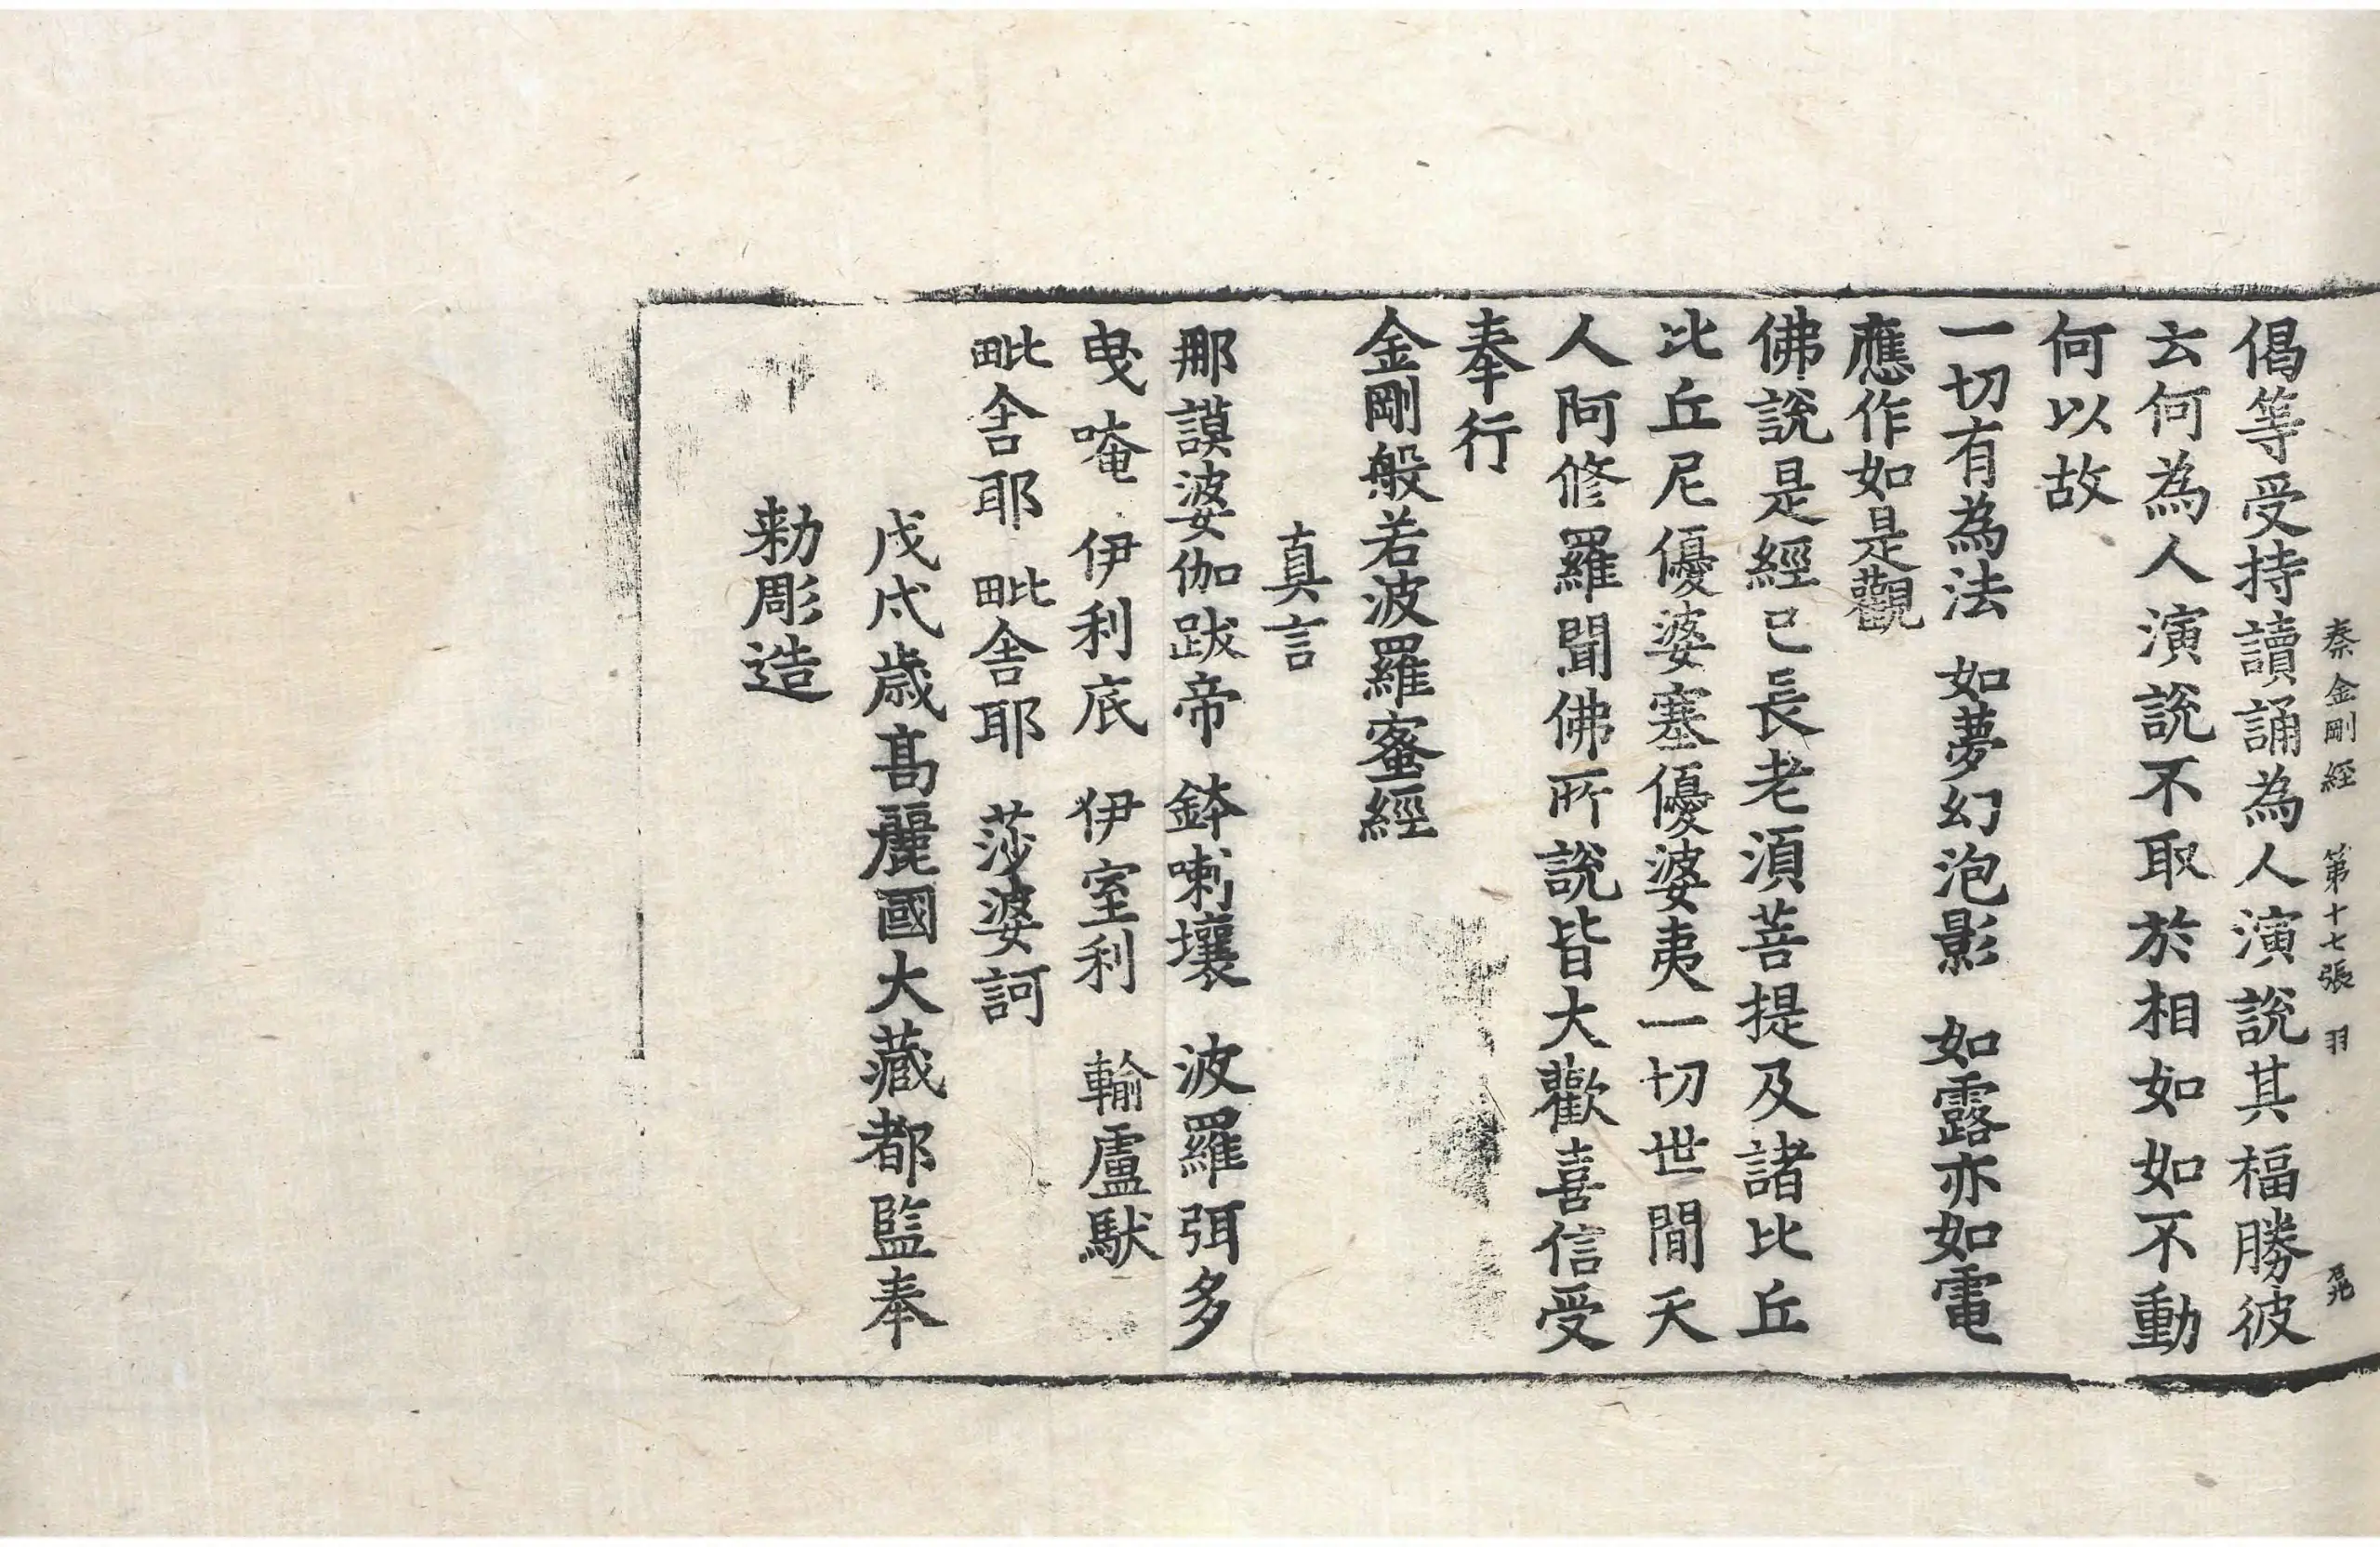 秦金剛經 第十七張 羽
偈等受持讀誦為人演說其福勝彼
云何為人演說不取於相如如不動
何以故
一切有為法 如夢幻泡影 如露亦如電
應作如是觀
佛說是經已長老須菩提及諸比丘
比丘尼優婆塞優婆夷一切世間天
人阿修羅聞佛所說皆大歡喜信受
奉行
金剛般若波羅蜜經
真言
那謨婆伽跋帝 鉢喇壤 波羅弭多
曳唵 伊利底 伊室利 輸盧馱
毗舍耶 毗舍耶 莎婆訶
戊戌歲高麗國大藏都監奉
勑彫造